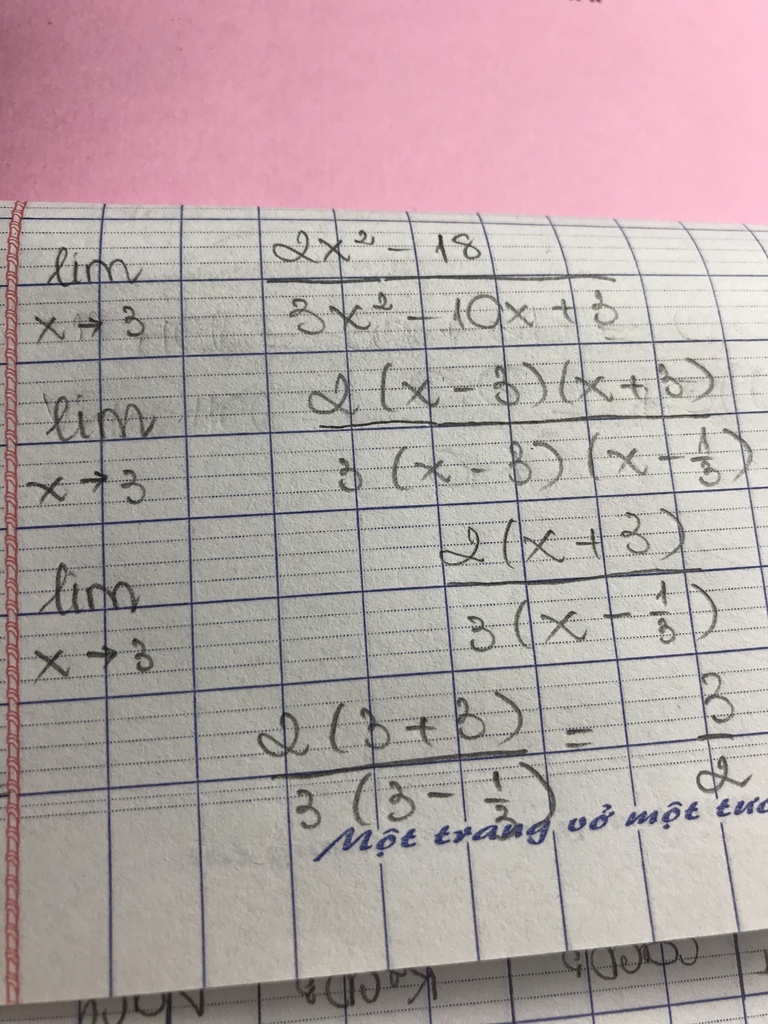 lim 2x² - 18
x → 3 3x² - 10x + 3
lim 2 (x - 3) (x + 3)
x → 3 3 (x - 3) (x - 1/3)
lim 2 (x + 3)
x → 3 3 (x - 1/3)
2 (3 + 3) / 3 (3 - 1/3) = 3/2
Một trang vở một